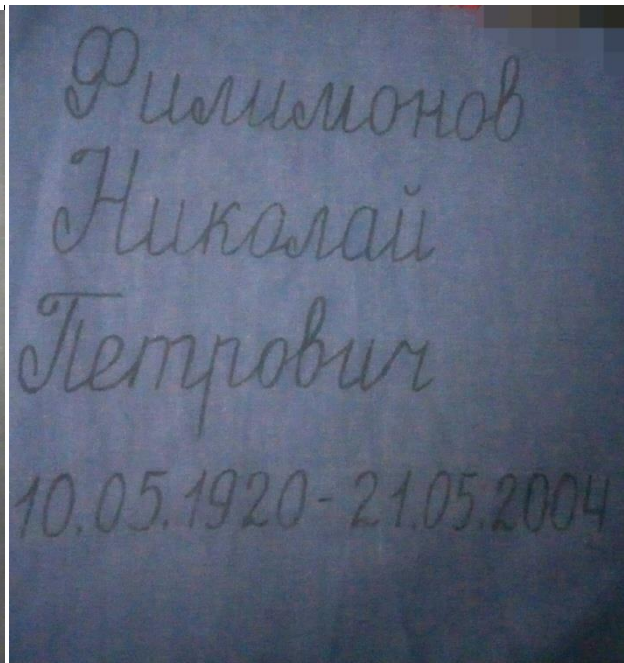 Филимонов
Николай
Петрович
10.05.1920-21.05.2004